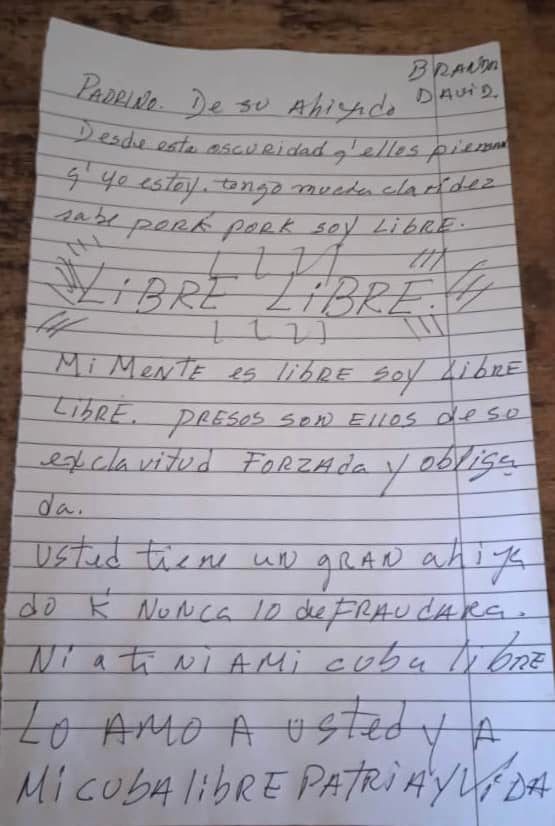 BRANDN
PADRINO. De su Ahiyado DAVID.
Desde esta oscuridad q' ellos piensan
q' yo estoy. tengo mucha claridez
sabe PORK PORK SOY LIBRE.
LIBRE LIBRE.
Mi MeNTE es liBRE SOY LibRE
LibRE. PRESOS SON EllOS de so
exclavitud FORZADA y obliga
da.
usted tiene uN gRAN ahiya
do K NuNca lo deFRAUdARa.
Ni a ti Ni A Mi cuba libRE
LO AMO A usted y A
Mi CUBA libRE PATRIA Y ViDA